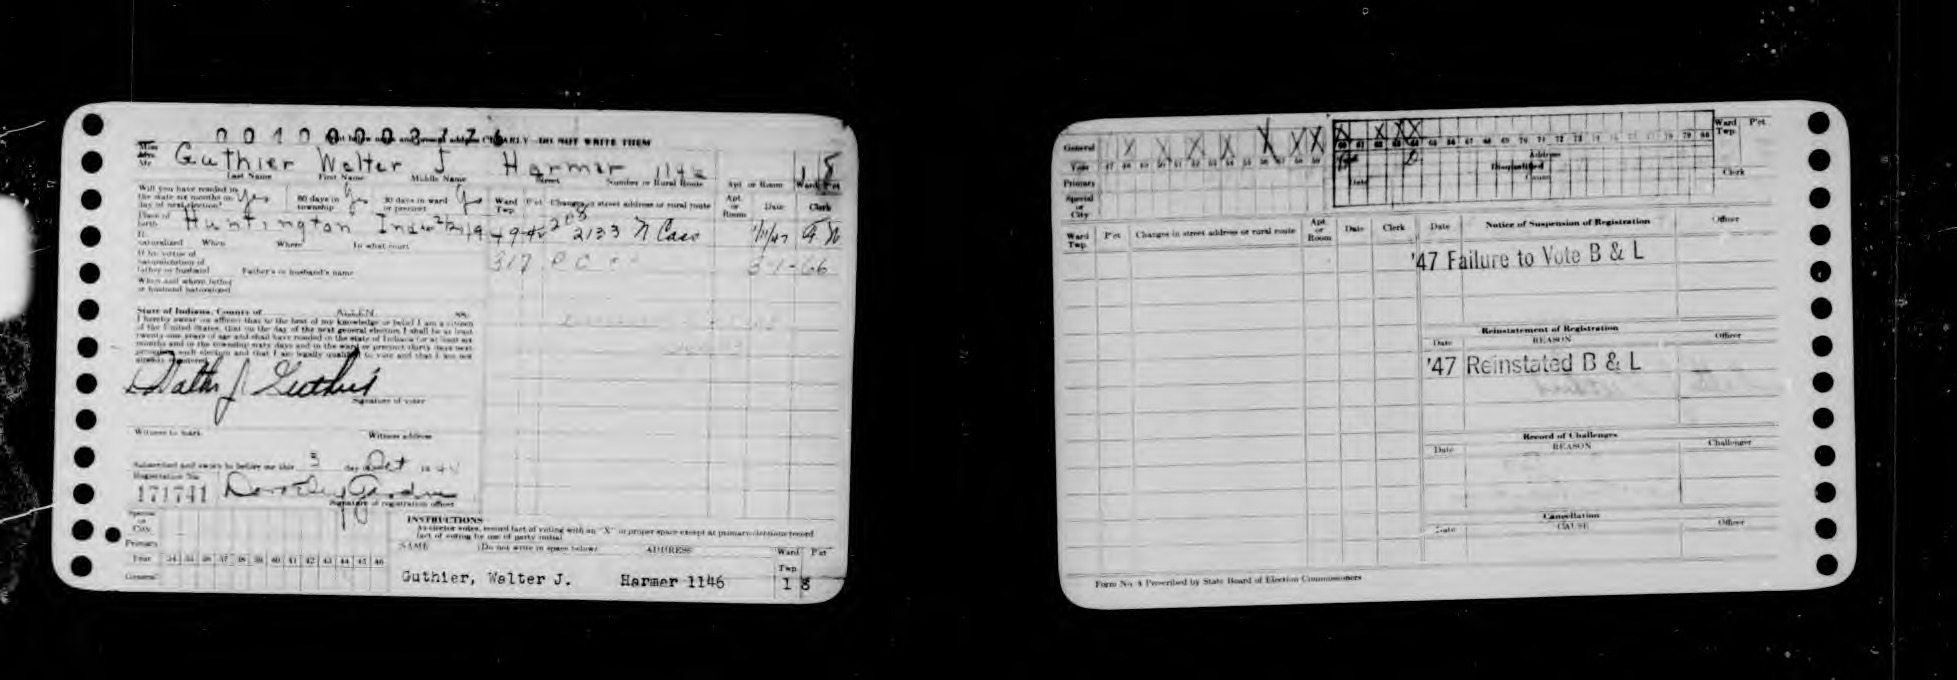 0010000 3776
CLEARLY—DO NOT WRITE THEM
Miss
Mrs.
Mr. Guthier Walter J Harmer 1146 1 8
Last Name First Name Middle Name Street Number or Rural Route Apt. or Room Ward Pct
Will you have resided in the state six months on day of next election? Yes 60 days in township Yes 30 days in ward or precinct Yes
Ward Twp. Pct Changes in street address or rural route Apt. or Room Date Clerk
Place of birth Huntington Ind
2133 N Cass 1/11/47
317 3-1-66
If naturalized When Where In what court
If by virtue of naturalization of father or husband Father's or husband's name
When and where father or husband naturalized
State of Indiana, County of ALLEN SS:
I hereby swear (or affirm) that to the best of my knowledge or belief I am a citizen
of the United States, that on the day of the next general election I shall be at least
twenty-one years of age and shall have resided in the state of Indiana for at least six
months and in the township sixty days and in the ward or precinct thirty days next
preceding such election and that I am legally qualified to vote and that I am not
already registered.
Walter J Guthier
Signature of voter
Witness to mark Witness address
Subscribed and sworn to before me this 3 day of Oct
Registration No.
171741 Dorothy
Signature of registration officer
Special or City
Primary
Year 34 35 36 37 38 39 40 41 42 43 44 45 46
General
INSTRUCTIONS
As elector votes, record fact of voting with an "X" in proper space except at primary elections record
fact of voting by use of party initial.
NAME (Do not write in space below) ADDRESS Ward Twp. Pct
Guthier, Walter J. Harmer 1146 1 8
General X X X X X X X X X X X X
Vote 47 48 49 50 51 52 53 54 55 56 57 58 59 60 61 62 63 64 65 66 67 68 69 70 71 72 73 74 75 76 77 78 79 80
Ward Twp. Pct
Primary
Address
Disqualified
Date Cause Clerk
Special or City
Ward Twp. Pct Changes in street address or rural route Apt. or Room Date Clerk
Date Notice of Suspension of Registration Officer
'47 Failure to Vote B & L
Reinstatement of Registration
Date REASON Officer
'47 Reinstated B & L
Record of Challenges
Date REASON Challenger
Cancellation
Date CAUSE Officer
Form No. 4 Prescribed by State Board of Election Commissioners